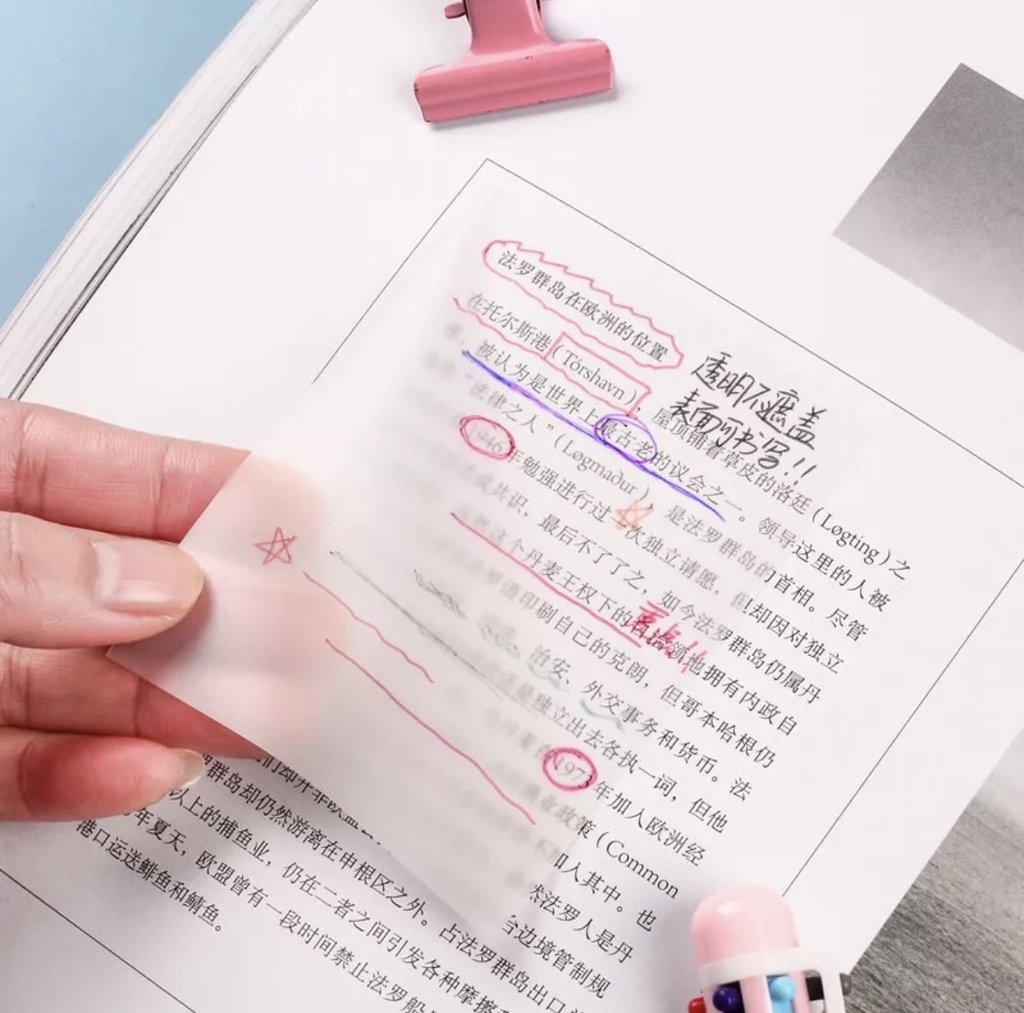 法罗群岛在欧洲的位置
透明不遮盖
表面可书写!!
在托尔斯港（Tórshavn），屋顶铺着草皮的洛廷（Løgting）之
被认为是世界上最古老的议会之一。领导这里的人被
“法律之人”（Løgmaður），是法罗群岛的首相。尽管
1946年勉强进行过一次独立请愿，但却因对独立
共识，最后不了了之，如今法罗群岛仍属丹
这个丹麦王权下的自治领地拥有内政自
印刷自己的克朗，但哥本哈根仍
治安、外交事务和货币。法
独立出去各执一词，但他
197 年加入欧洲经
业政策（Common
加入其中。也
法罗人是丹
台边境管制规
们却并非欧盟
罗群岛却仍然游离在申根区之外。占法罗群岛出口
以上的捕鱼业，仍在二者之间引发各种摩擦
年夏天，欧盟曾有一段时间禁止法罗船
港口运送鲱鱼和鲭鱼。